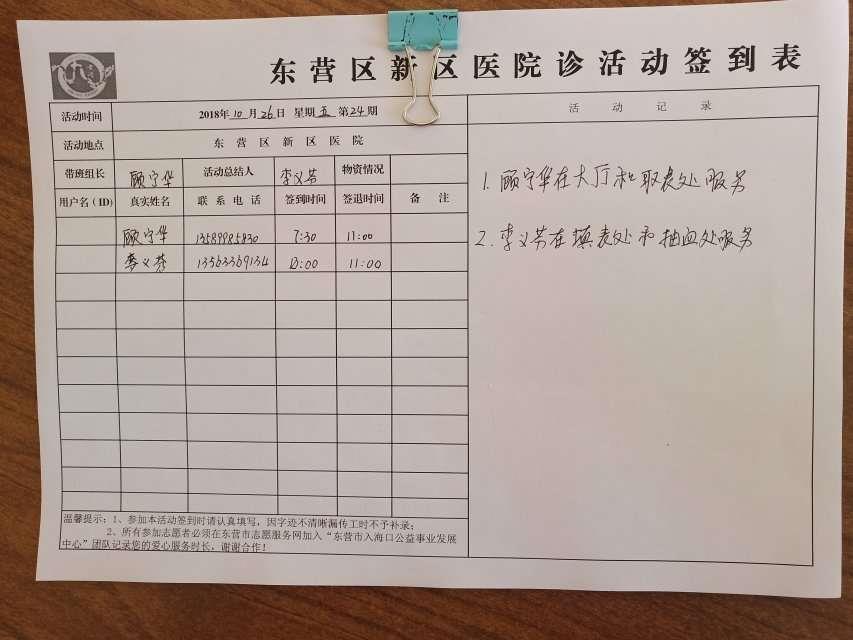 东营区新区医院诊活动签到表
活动时间 2018年10月26日 星期五 第24期 活动记录
活动地点 东营区新区医院
带班组长 顾宁华 活动总结人 李义芬 物资情况
用户名(ID) 真实姓名 联系电话 签到时间 签退时间 备注
顾宁华 13589985830 7:30 11:00
李义芬 13563369134 10:00 11:00
1. 顾宁华在大厅和取表处服务
2. 李义芬在填表处和抽血处服务
温馨提示:1、参加本活动签到时请认真填写,因字迹不清晰漏传工时不予补录;
2、所有参加志愿者必须在东营市志愿服务网加入“东营市入海口公益事业发展
中心”团队记录您的爱心服务时长,谢谢合作!